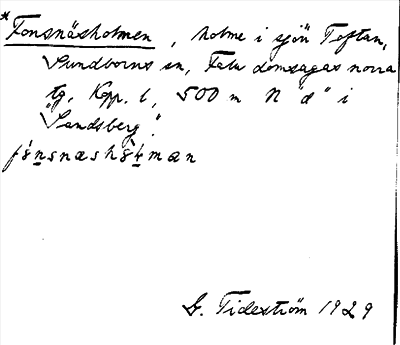 *Fonsnäsholmen, holme i sjön Toftan,
Sundborns sn, Falu domsagas norra
tg, Kopp. l, 500 m N "d" i
"Sandsberg".
G. Tideström 1929